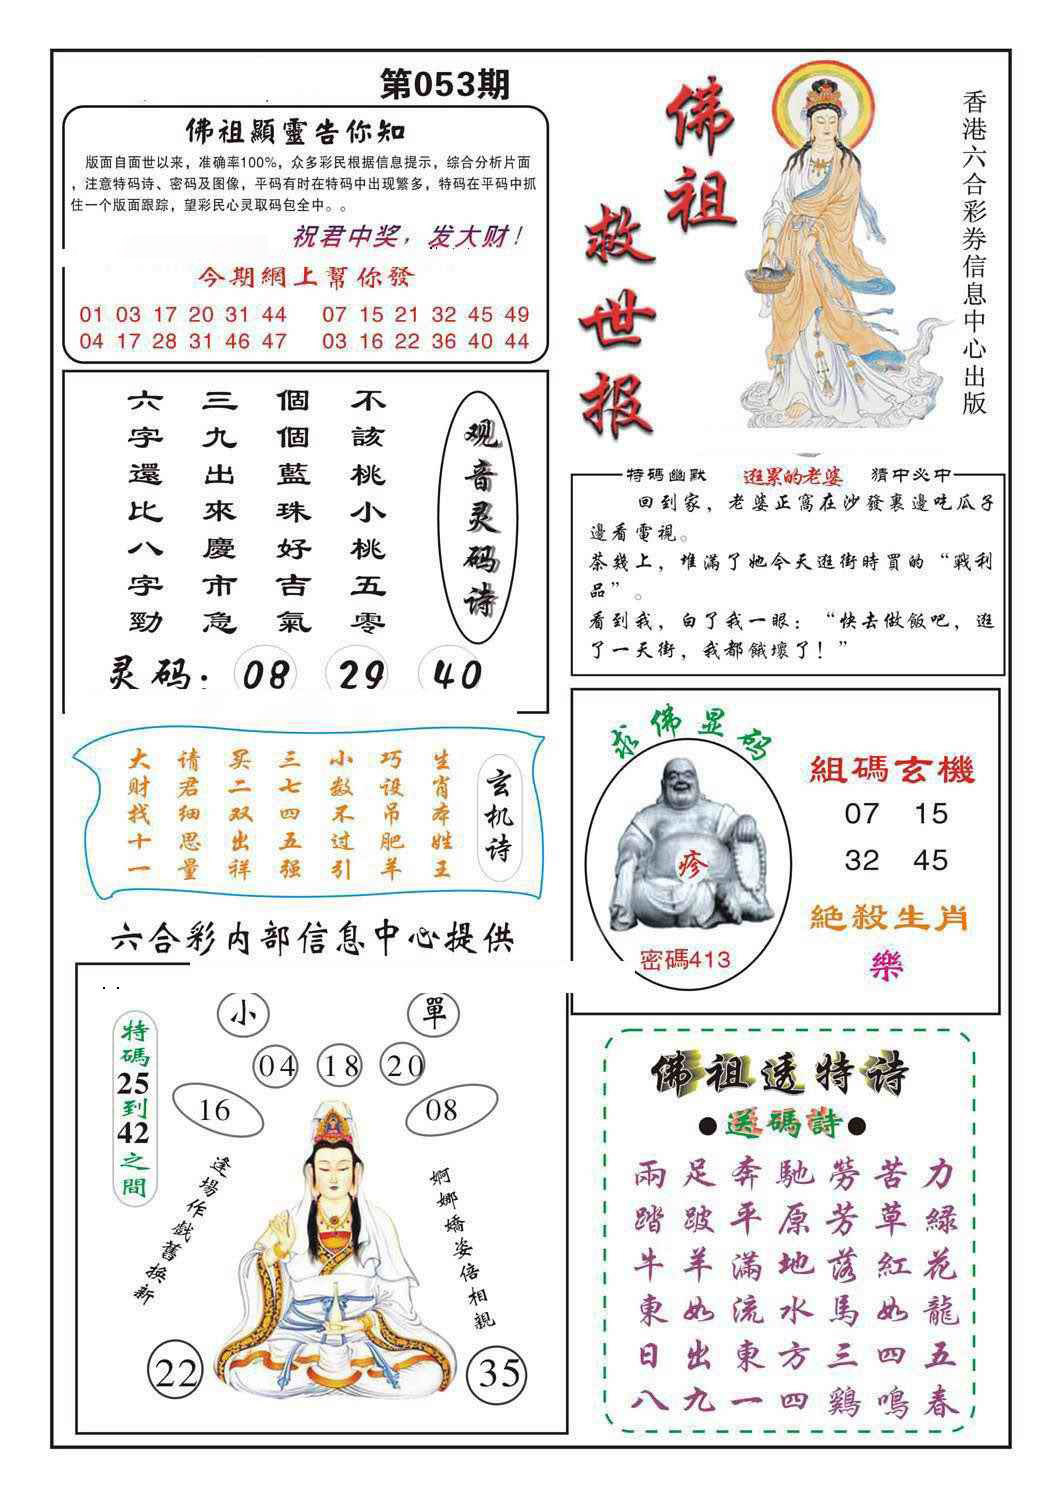 第053期
佛祖顯靈告你知
版面自面世以来，准确率100%，众多彩民根据信息提示，综合分析片面
，注意特码诗、密码及图像，平码有时在特码中出现繁多，特码在平码中抓
住一个版面跟踪，望彩民心灵取码包全中。。
祝君中奖，发大财！
今期網上幫你發
01 03 17 20 31 44 07 15 21 32 45 49
04 17 28 31 46 47 03 16 22 36 40 44
佛祖
救世报
香港六合彩券信息中心出版
观音灵码诗
不該桃小桃五零
個個藍珠好吉氣
三九出來慶市急
六字還比八字勁
灵码：08 29 40
特碼幽默 逛累的老婆 猜中必中
回到家，老婆正窩在沙發裏邊吃瓜子
邊看電視。
茶幾上，堆滿了她今天逛街時買的“戰利
品”。
看到我，白了我一眼：“快去做飯吧，逛
了一天街，我都餓壞了！”
玄机诗
生肖本姓王
巧设吊肥羊
小数不过引
三七四五强
买二双出祥
请君细思量
大财找十一
求佛显码
疹
密碼413
組碼玄機
07 15
32 45
絕殺生肖
樂
六合彩内部信息中心提供
特碼25到42之間
小 單
04 18 20
16 08
逢場作戲舊换新
婀娜嬌姿倍相親
22 35
佛祖透特诗
●送碼詩●
兩足奔馳勞苦力
踏跛平原芳草緑
牛羊滿地落紅花
東如流水馬如龍
日出東方三四五
八九一四鷄鳴春